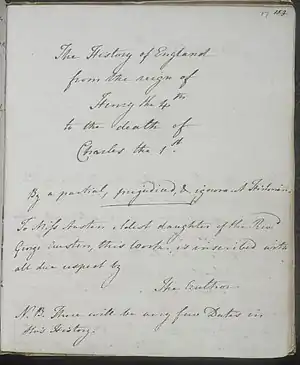 153
The History of England
from the reign of
Henry the 4th
to the death of
Charles the 1st
By a partial, prejudiced, & ignorant Historian.
To Miss Austen eldest daughter of the Revd
George Austen, this Work is inscribed with
all due respect by
The Author
N.B. There will be very few Dates in
this History.